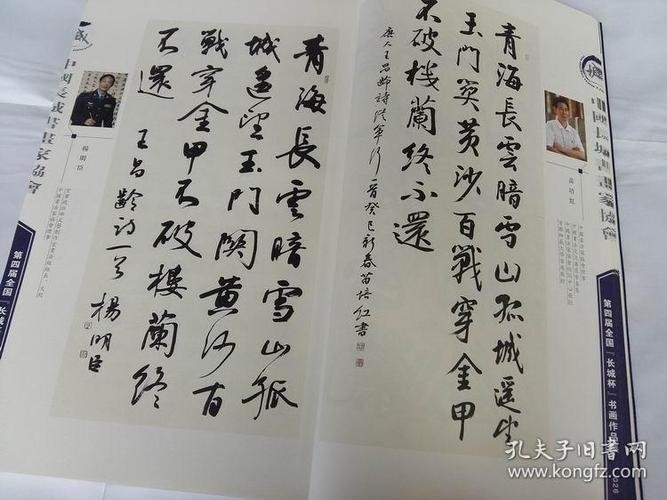 中國長城書畫家協會
苗培红
第四届全国“长城杯”书画作品
青海長雲暗雪山孤城遥望
玉門関黄沙百戰穿金甲
不破樓蘭終不還
唐人王昌齡詩從軍行一首癸巳新春苗培红書
青海長雲暗雪山孤
城遥望玉門関黄沙百
戰穿金甲不破樓蘭終
不還 王昌齡詩一首 楊明臣
中國長城書畫家協會
杨明臣
第四届全国“长城
孔夫子旧书网
www.kongfz.com